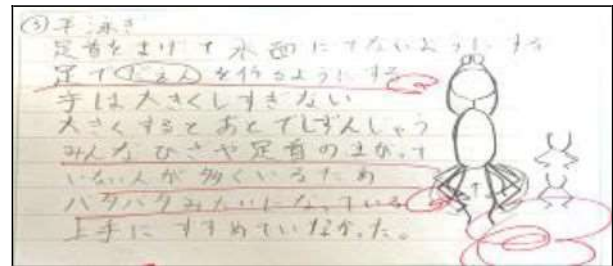 ③平泳ぎ
足首をまげて水面にでないようにする
足で
を作るようにする
手は大きくしすぎない
大きくするとあとでしずんじゃう
みんなひざや足首のまがって
いない人が多くいるため
バタバタみたいになっている
上手にすすめていなかった。